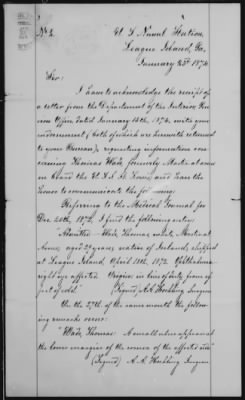 No 2.
U. S. Naval Station,
League Island, Pa.
January 23d 1874
Sir:
I have to acknowledge the receipt of
a letter from the Department of the Interior, Pen
sion Office, dated January 14th, 1874, with your
endorsement (both of which are herewith returned
to your Bureau), requesting information con-
cerning Thomas Wade, formerly Master at arms
on board the U. S. S.
honor to communicate the following:
Reference to the Medical Journal for
Dec 20th, 1872, I find the following entry:
"Admitted Wade, Thomas, white, Master at
Arms, aged 29 years, native of Ireland, shipped
at League Island, April 18th, 1872. Ophthalmia
right eye affected. Origin: in line of duty, from ef-
fect of cold."
(Signed) A. A. Hoehling, Surgeon
On the 27th of the same month the follow-
ing remarks occur:
"Wade, Thomas: A small ulcer appears at
the lower margin of the cornea of the affected side"
(Signed) A. A. Hoehling Surgeon